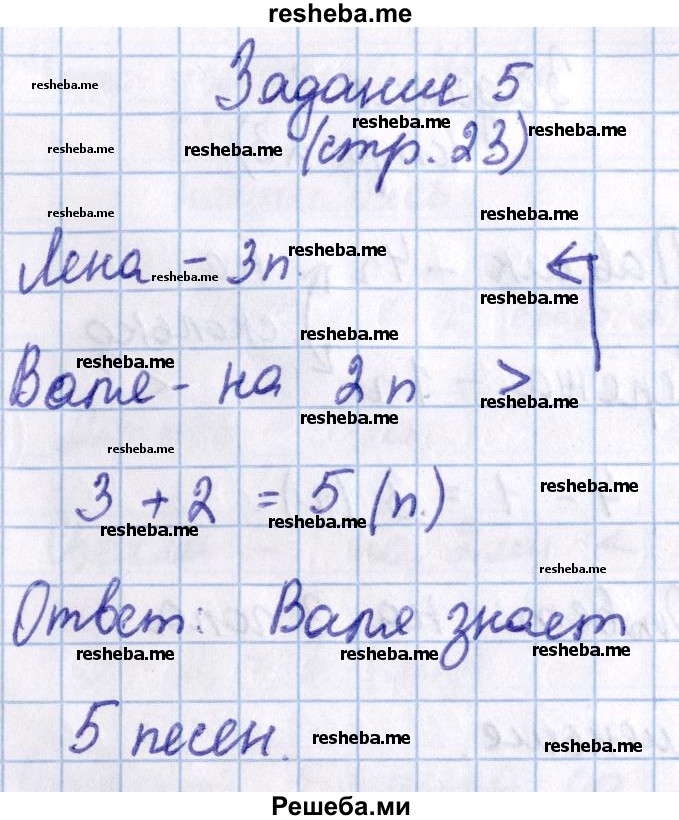 resheba.me
Задание 5
resheba.me
resheba.me resheba.me
(стр. 23)
resheba.me resheba.me
resheba.me resheba.me
Лена - 3 п.
resheba.me
resheba.me
resheba.me
resheba.me
resheba.me
Валя - на 2 п >
resheba.me
resheba.me
resheba.me
resheba.me
3 + 2 = 5 (п.)
resheba.me
resheba.me
resheba.me
resheba.me
Ответ: Валя знает
resheba.me resheba.me resheba.me
5 песен.
resheba.me resheba.me
Решеба.ми